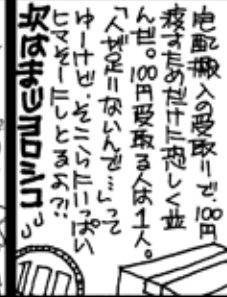 宅配搬入の受取りで、100円
渡すためだけに恐しく並
んだ。100円受取る人は1人。
「人が足りないんで…」って
ゆーけど、そこらにいっぱい
ヒマそーにしとるよ?!
次はまじヨロシコ